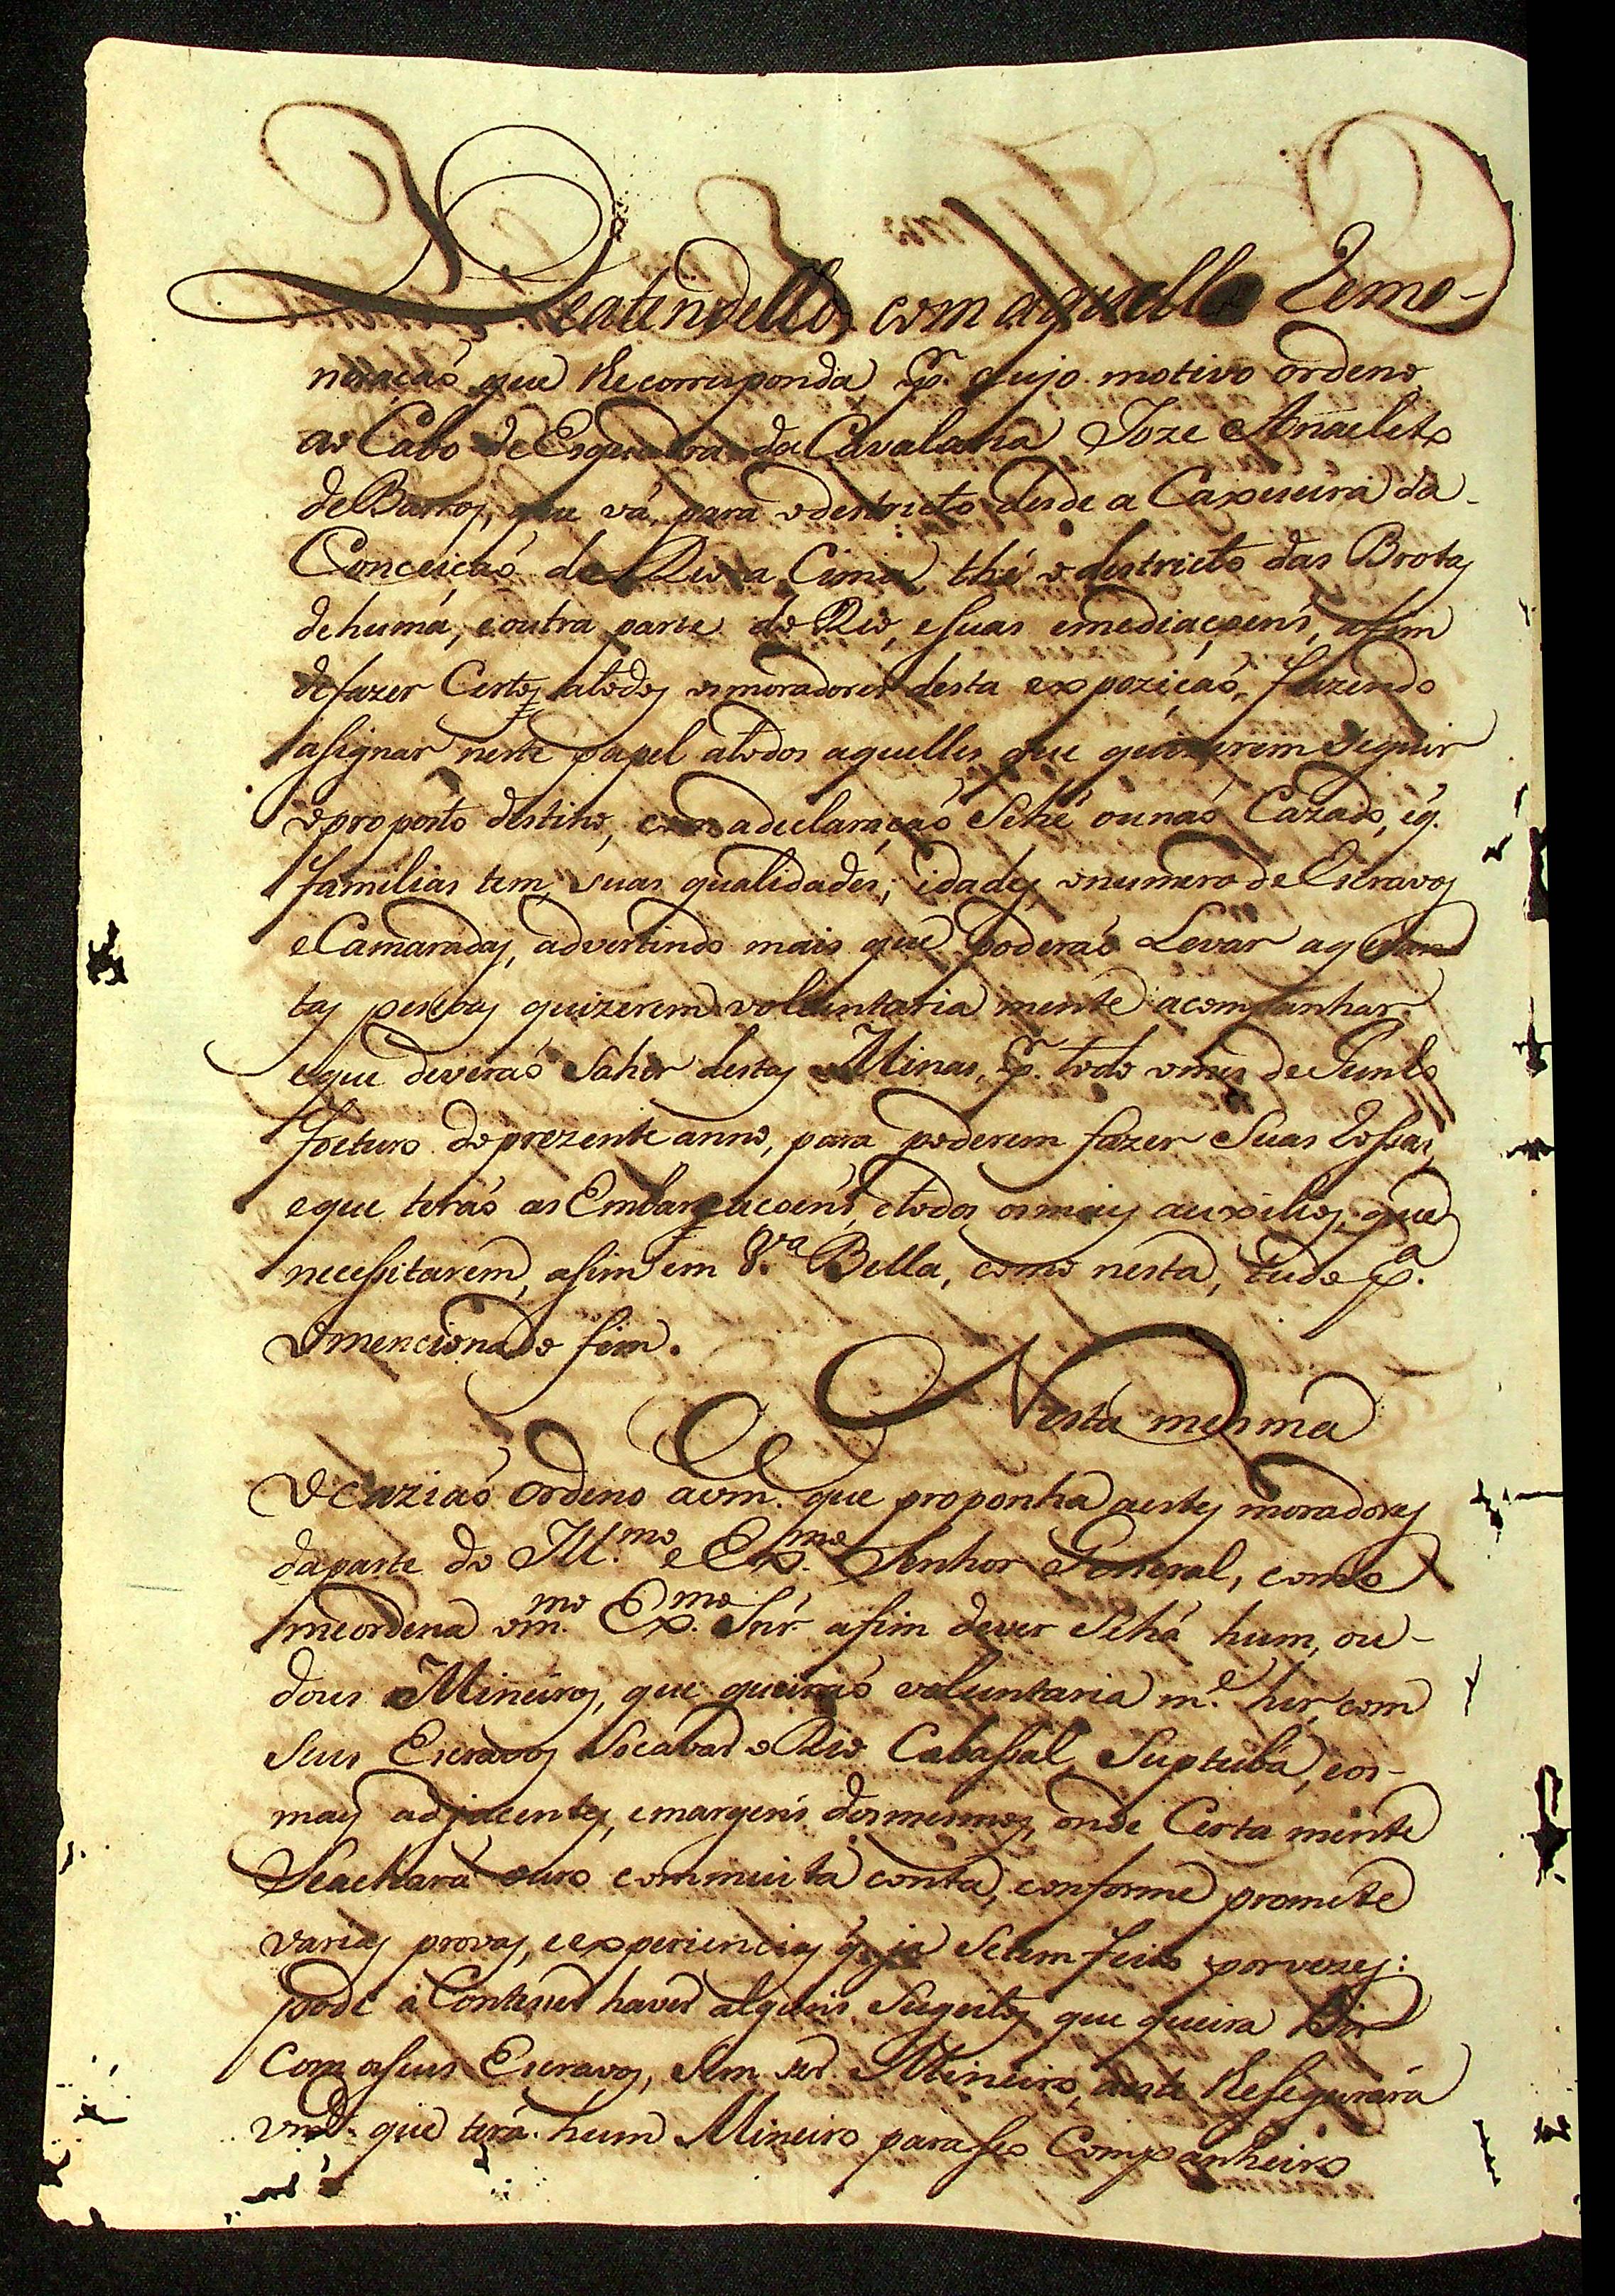 Reatendello com aquella Remo-
neraçaõ que lhe corresponda pr. cujo motivo ordeno
ao Cabo de Esquadra da Cavalaria Joze Anacleto
de Barros, que vá para o destricto desde a Caxueira da
Conceiçaõ de Rio a Cima thé o destricto das Brotas
de huma, e outra parte do Rio, e suas emediaçoens, afim
de fazer Certos atodos os moradores desta expoziçaõ, fazendo
asignar neste papel atodos aquelles que quizerem Seguir
o proposto destino, com a declaraçaõ Sehé ounaõ Cazado, eq.
familias tem, suas qualidades, idades, onumero de Escravos
e Camaradas, advertindo mais que poderaõ Levar aquan
tas pesoas quizerem voluntaria mente acompanhar
eque deveraõ Sahir destas Minas, pr. todo omes de Junho
focturo do prezente anno, para poderem fazer Suas Rossas,
eque teraõ as Embarcaçoens, etodos osmais auxilios, que
necessitarem, asim em Va. Bella, como nesta, tudo pa.
o mencionado fim.
Nesta mesma
Ocaziaõ Ordeno avm. que proponha aestes moradores
daparte do Illmo. e Exmo. Senhor General, como
meordena omo. Exmo. Snr. afim dever Sehá hum, ou-
dous Mineiros, que queiraõ voluntaria me. hir, com
Seus Escravos Socavar o Rio Cabassal, Suptuba, eos-
mais adjacentes, emargens dosmesmos, onde Certa mente
Seachará ouro commuita conta, conforme promete
varias provas, eexperiencias q. ja Setem feito porvezes:
pode a Conteser haver alguns Sugeitos que queira hir
Com oseus Escravos, Sem ser Mineiro, aeste lhesegurará
vm. que terá hum Mineiro para seo Companheiro